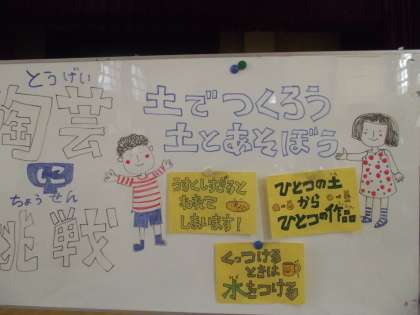 とうげい
陶芸
に
ちょうせん
挑戦
土でつくろう
土とあそぼう
うすくしすぎると
われて
しまいます!
ひとつの土
から
ひとつの作品
くっつける
ときは
水をつける